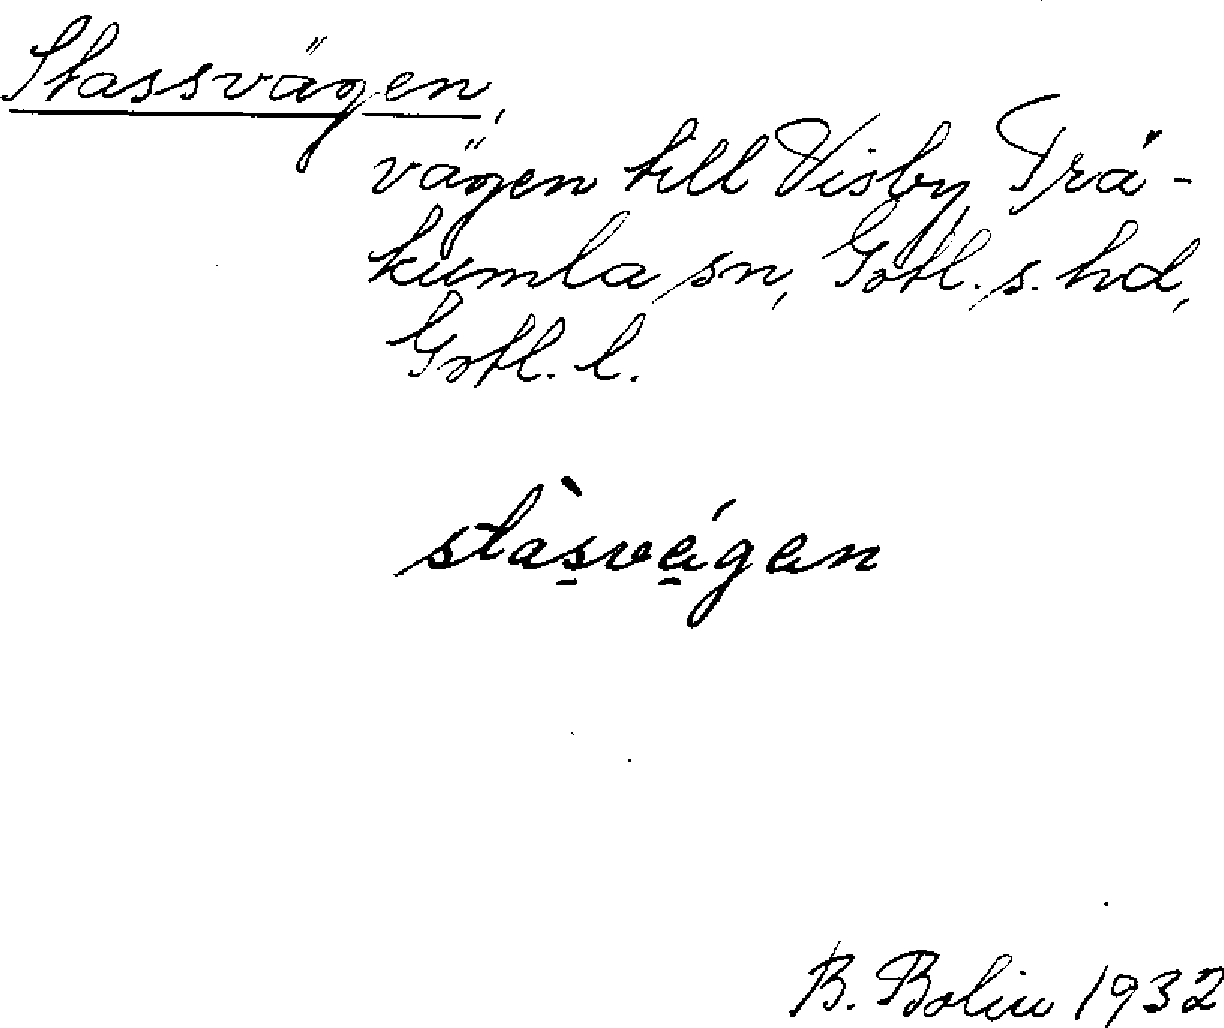 Stassvägen,
vägen till Visby, Trä-
kumla sn, Gotl. s. hd,
Gotl. l.
stàs̱ve̱ágan
B. Bolin 1932